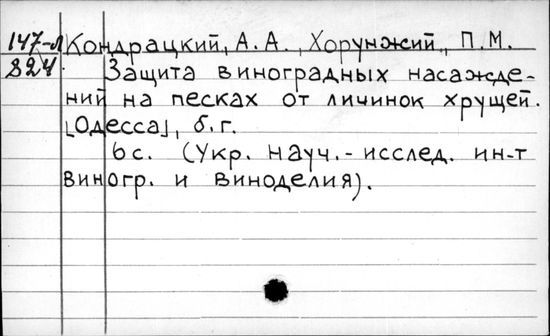 147-Л Кондрацкий, А.А., Хорунжий, П.М.
824 Защита виноградных насажде-
ний на песках от личинок хрущей.
[Одесса], б.г.
6с. (Укр. науч.-исслед. ин-т
виногр. и виноделия).